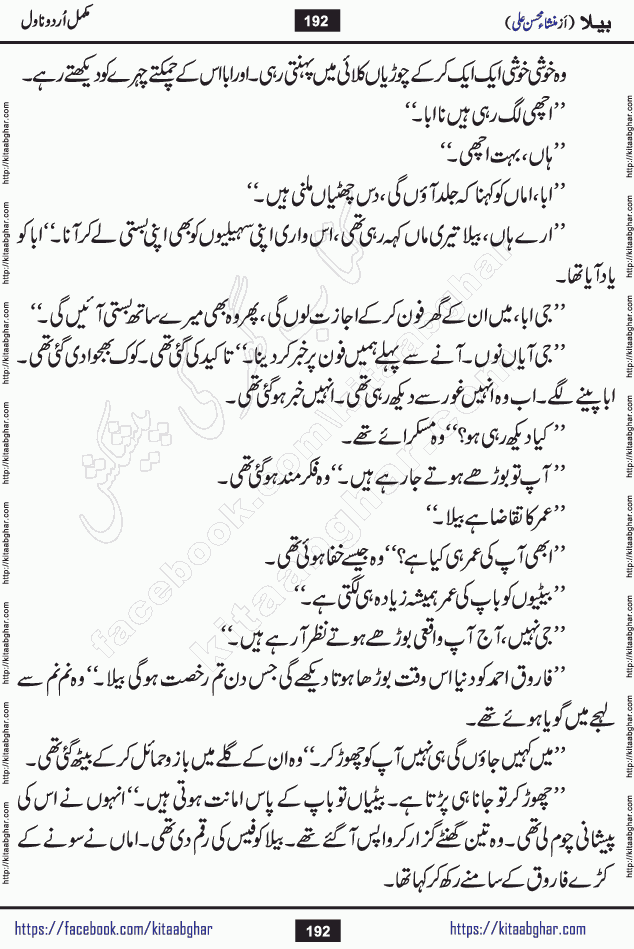 بیلا (از منشاء محسن علی) 192 مکمل اُردو ناول
وہ خوشی خوشی ایک ایک کر کے چوڑیاں کلائی میں پہنتی رہی۔ اور ابا اس کے چمکتے چہرے کو دیکھتے رہے۔
’’اچھی لگ رہی ہیں نا ابا۔‘‘
’’ہاں، بہت اچھی۔‘‘
’’ابا، اماں کو کہنا کہ جلد آؤں گی، دس چھٹیاں ملنی ہیں۔‘‘
’’ارے ہاں، بیلا تیری ماں کہہ رہی تھی، اس واری اپنی سہیلیوں کو بھی اپنی بستی لے کر آنا۔‘‘ ابا کو
یاد آیا تھا۔
’’جی ابا، میں ان کے گھر فون کر کے اجازت لوں گی، پھر وہ بھی میرے ساتھ بستی آئیں گی۔‘‘
’’جی آیاں نوں۔ آنے سے پہلے ہمیں فون پر خبر کر دینا۔‘‘ تاکید کی گئی تھی۔ کوک بھجوا دی گئی تھی۔
ابا پینے لگے۔ اب وہ انہیں غور سے دیکھ رہی تھی۔ انہیں خبر ہو گئی تھی۔
’’کیا دیکھ رہی ہو؟‘‘ وہ مسکرائے تھے۔
’’آپ تو بوڑھے ہوتے جا رہے ہیں۔‘‘ وہ فکر مند ہو گئی تھی۔
’’عمر کا تقاضا ہے بیلا۔‘‘
’’ابھی آپ کی عمر ہی کیا ہے؟‘‘ وہ جیسے خفا ہوئی تھی۔
’’بیٹیوں کو باپ کی عمر ہمیشہ زیادہ ہی لگتی ہے۔‘‘
’’جی نہیں، آج آپ واقعی بوڑھے ہوتے نظر آ رہے ہیں۔‘‘
’’فاروق احمد کو دنیا اس وقت بوڑھا ہوتا دیکھے گی جس دن تم رخصت ہو گی بیلا۔‘‘ وہ نم نم سے
لہجے میں گویا ہوئے تھے۔
’’میں کہیں جاؤں گی ہی نہیں آپ کو چھوڑ کر۔‘‘ وہ ان کے گلے میں بازو حمائل کر کے بیٹھ گئی تھی۔
’’چھوڑ کر تو جانا ہی پڑتا ہے۔ بیٹیاں تو باپ کے پاس امانت ہوتی ہیں۔‘‘ انہوں نے اس کی
پیشانی چوم لی تھی۔ وہ تین گھنٹے گزار کر واپس آ گئے تھے۔ بیلا کو فیس کی رقم دی تھی۔ اماں نے سونے کے
کڑے فاروق کے سامنے رکھ کر کہا تھا۔
https://facebook.com/kitaabghar 192 https://kitaabghar.com
http://kitaabghar.com
کتاب گھر کی پیشکش
facebook.com/kitaabghar
kitaabghar.com